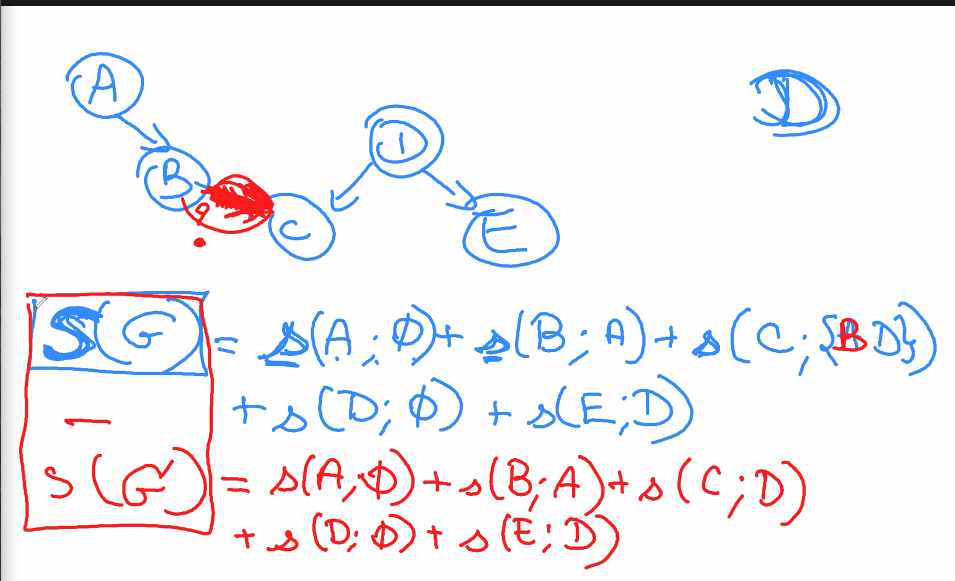 A
D
B
D
?
C
E
S(G) = s(A; Φ) + s(B; A) + s(C; {B D})
+ s(D; Φ) + s(E; D)
—
s(G') = s(A, Φ) + s(B; A) + s(C; D)
+ s(D; Φ) + s(E; D)